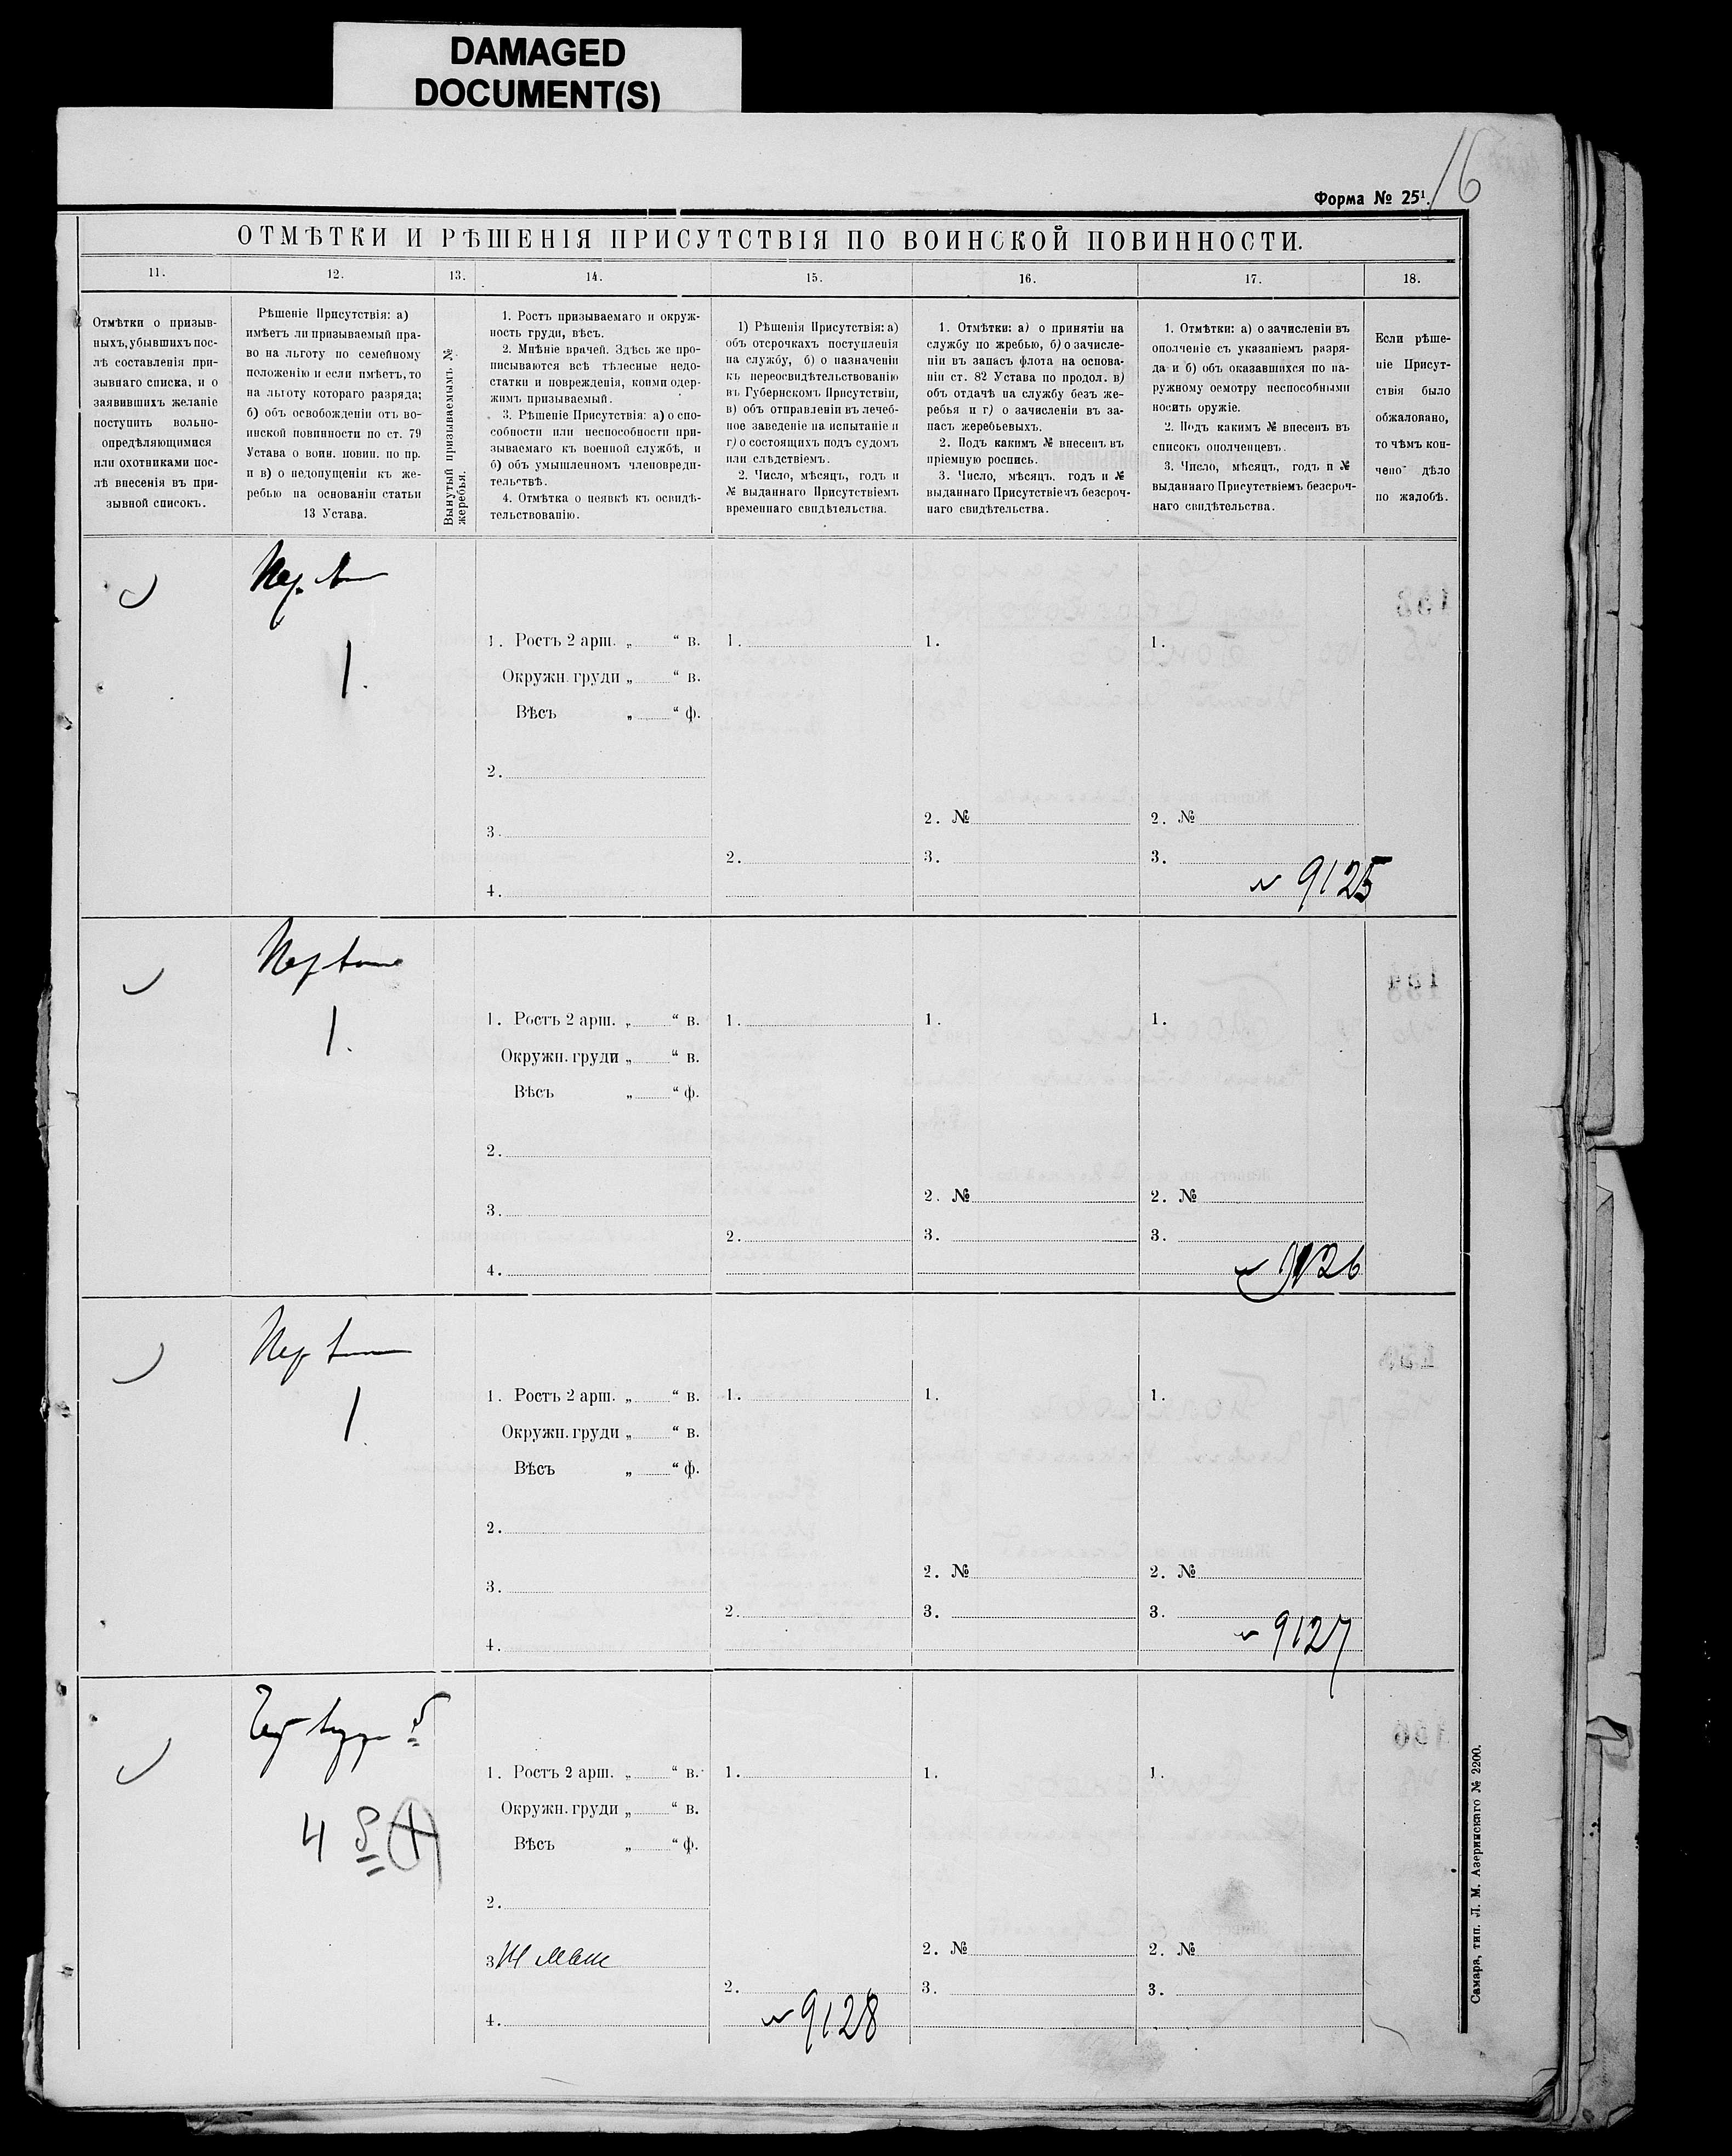 DAMAGED
DOCUMENT(S)
16
Форма № 25¹.
ОТМѢТКИ И РѢШЕНІЯ ПРИСУТСТВІЯ ПО ВОИНСКОЙ ПОВИННОСТИ.
11.
12.
13.
14.
15.
16.
17.
18.
Отмѣтки о призыв-
ныхъ, убывшихъ пос-
лѣ составленія при-
зывнаго списка, и о
заявившихъ желаніе
поступить вольно-
опредѣляющимися
или охотниками пос-
лѣ внесенія въ при-
зывной списокъ.
Рѣшеніе Присутствія: а)
имѣетъ ли призываемый пра-
во на льготу по семейному
положенію и если имѣетъ, то
на льготу котораго разряда;
б) объ освобожденіи отъ во-
инской повинности по ст. 79
Устава о воин. повин. по пр.
и в) о недопущеніи къ же-
ребью на основаніи статьи
13 Устава.
Вынутый призываемымъ №
жеребья.
1. Ростъ призываемаго и окруж-
ность груди, вѣсъ.
2. Мнѣніе врачей. Здѣсь же про-
писываются всѣ тѣлесные недо-
статки и поврежденія, коими одер-
жимъ призываемый.
3. Рѣшеніе Присутствія: а) о спо-
собности или неспособности при-
зываемаго къ военной службѣ, и
б) объ умышленномъ членовреди-
тельствѣ.
4. Отмѣтка о неявкѣ къ освидѣ-
тельствованію.
1) Рѣшенія Присутствія: а)
объ отсрочкахъ поступленія
на службу, б) о назначеніи
къ переосвидѣтельствованію
въ Губернскомъ Присутствіи,
в) объ отправленіи въ лечеб-
ное заведеніе на испытаніе и
г) о состоящихъ подъ судомъ
или слѣдствіемъ.
2. Число, мѣсяцъ, годъ и
№ выданнаго Присутствіемъ
временнаго свидѣтельства.
1. Отмѣтки: а) о принятіи на
службу по жребью, б) о зачисле-
ніи въ запасъ флота на основа-
ніи ст. 82 Устава по продол. в)
объ отдачѣ на службу безъ же-
ребья и г) о зачисленіи въ за-
пасъ жеребьевыхъ.
2. Подъ какимъ № внесенъ въ
пріемную роспись.
3. Число, мѣсяцъ, годъ и №
выданнаго Присутствіемъ безсроч-
наго свидѣтельства.
1. Отмѣтки: а) о зачисленіи въ
ополченіе съ указаніемъ разря-
да и б) объ оказавшихся по на-
ружному осмотру неспособными
носить оружіе.
2. Подъ какимъ № внесенъ въ
списокъ ополченцевъ.
3. Число, мѣсяцъ, годъ и №
выданнаго Присутствіемъ безсроч-
наго свидѣтельства.
Если рѣше-
ніе Присут-
ствія было
обжаловано,
то чѣмъ кон-
чено дѣло
по жалобѣ.
1.
1. Ростъ 2 арш. „ “ в.
Окружн. груди „ “ в.
Вѣсъ „ “ ф.
2.
3.
4.
1.
2.
1.
2. №
3.
1.
2. №
3.
№ 9125
1.
1. Ростъ 2 арш. „ “ в.
Окружн. груди „ “ в.
Вѣсъ „ “ ф.
2.
3.
4.
1.
2.
1.
2. №
3.
1.
2. №
3.
№ 9126
1.
1. Ростъ 2 арш. „ “ в.
Окружн. груди „ “ в.
Вѣсъ „ “ ф.
2.
3.
4.
1.
2.
1.
2. №
3.
1.
2. №
3.
№ 9127
4
1. Ростъ 2 арш. „ “ в.
Окружн. груди „ “ в.
Вѣсъ „ “ ф.
2.
3
4.
1.
2.
№ 9128
1.
2. №
3.
1.
2. №
3.
Самара, тип. Л. М. Азеринскаго № 2200.